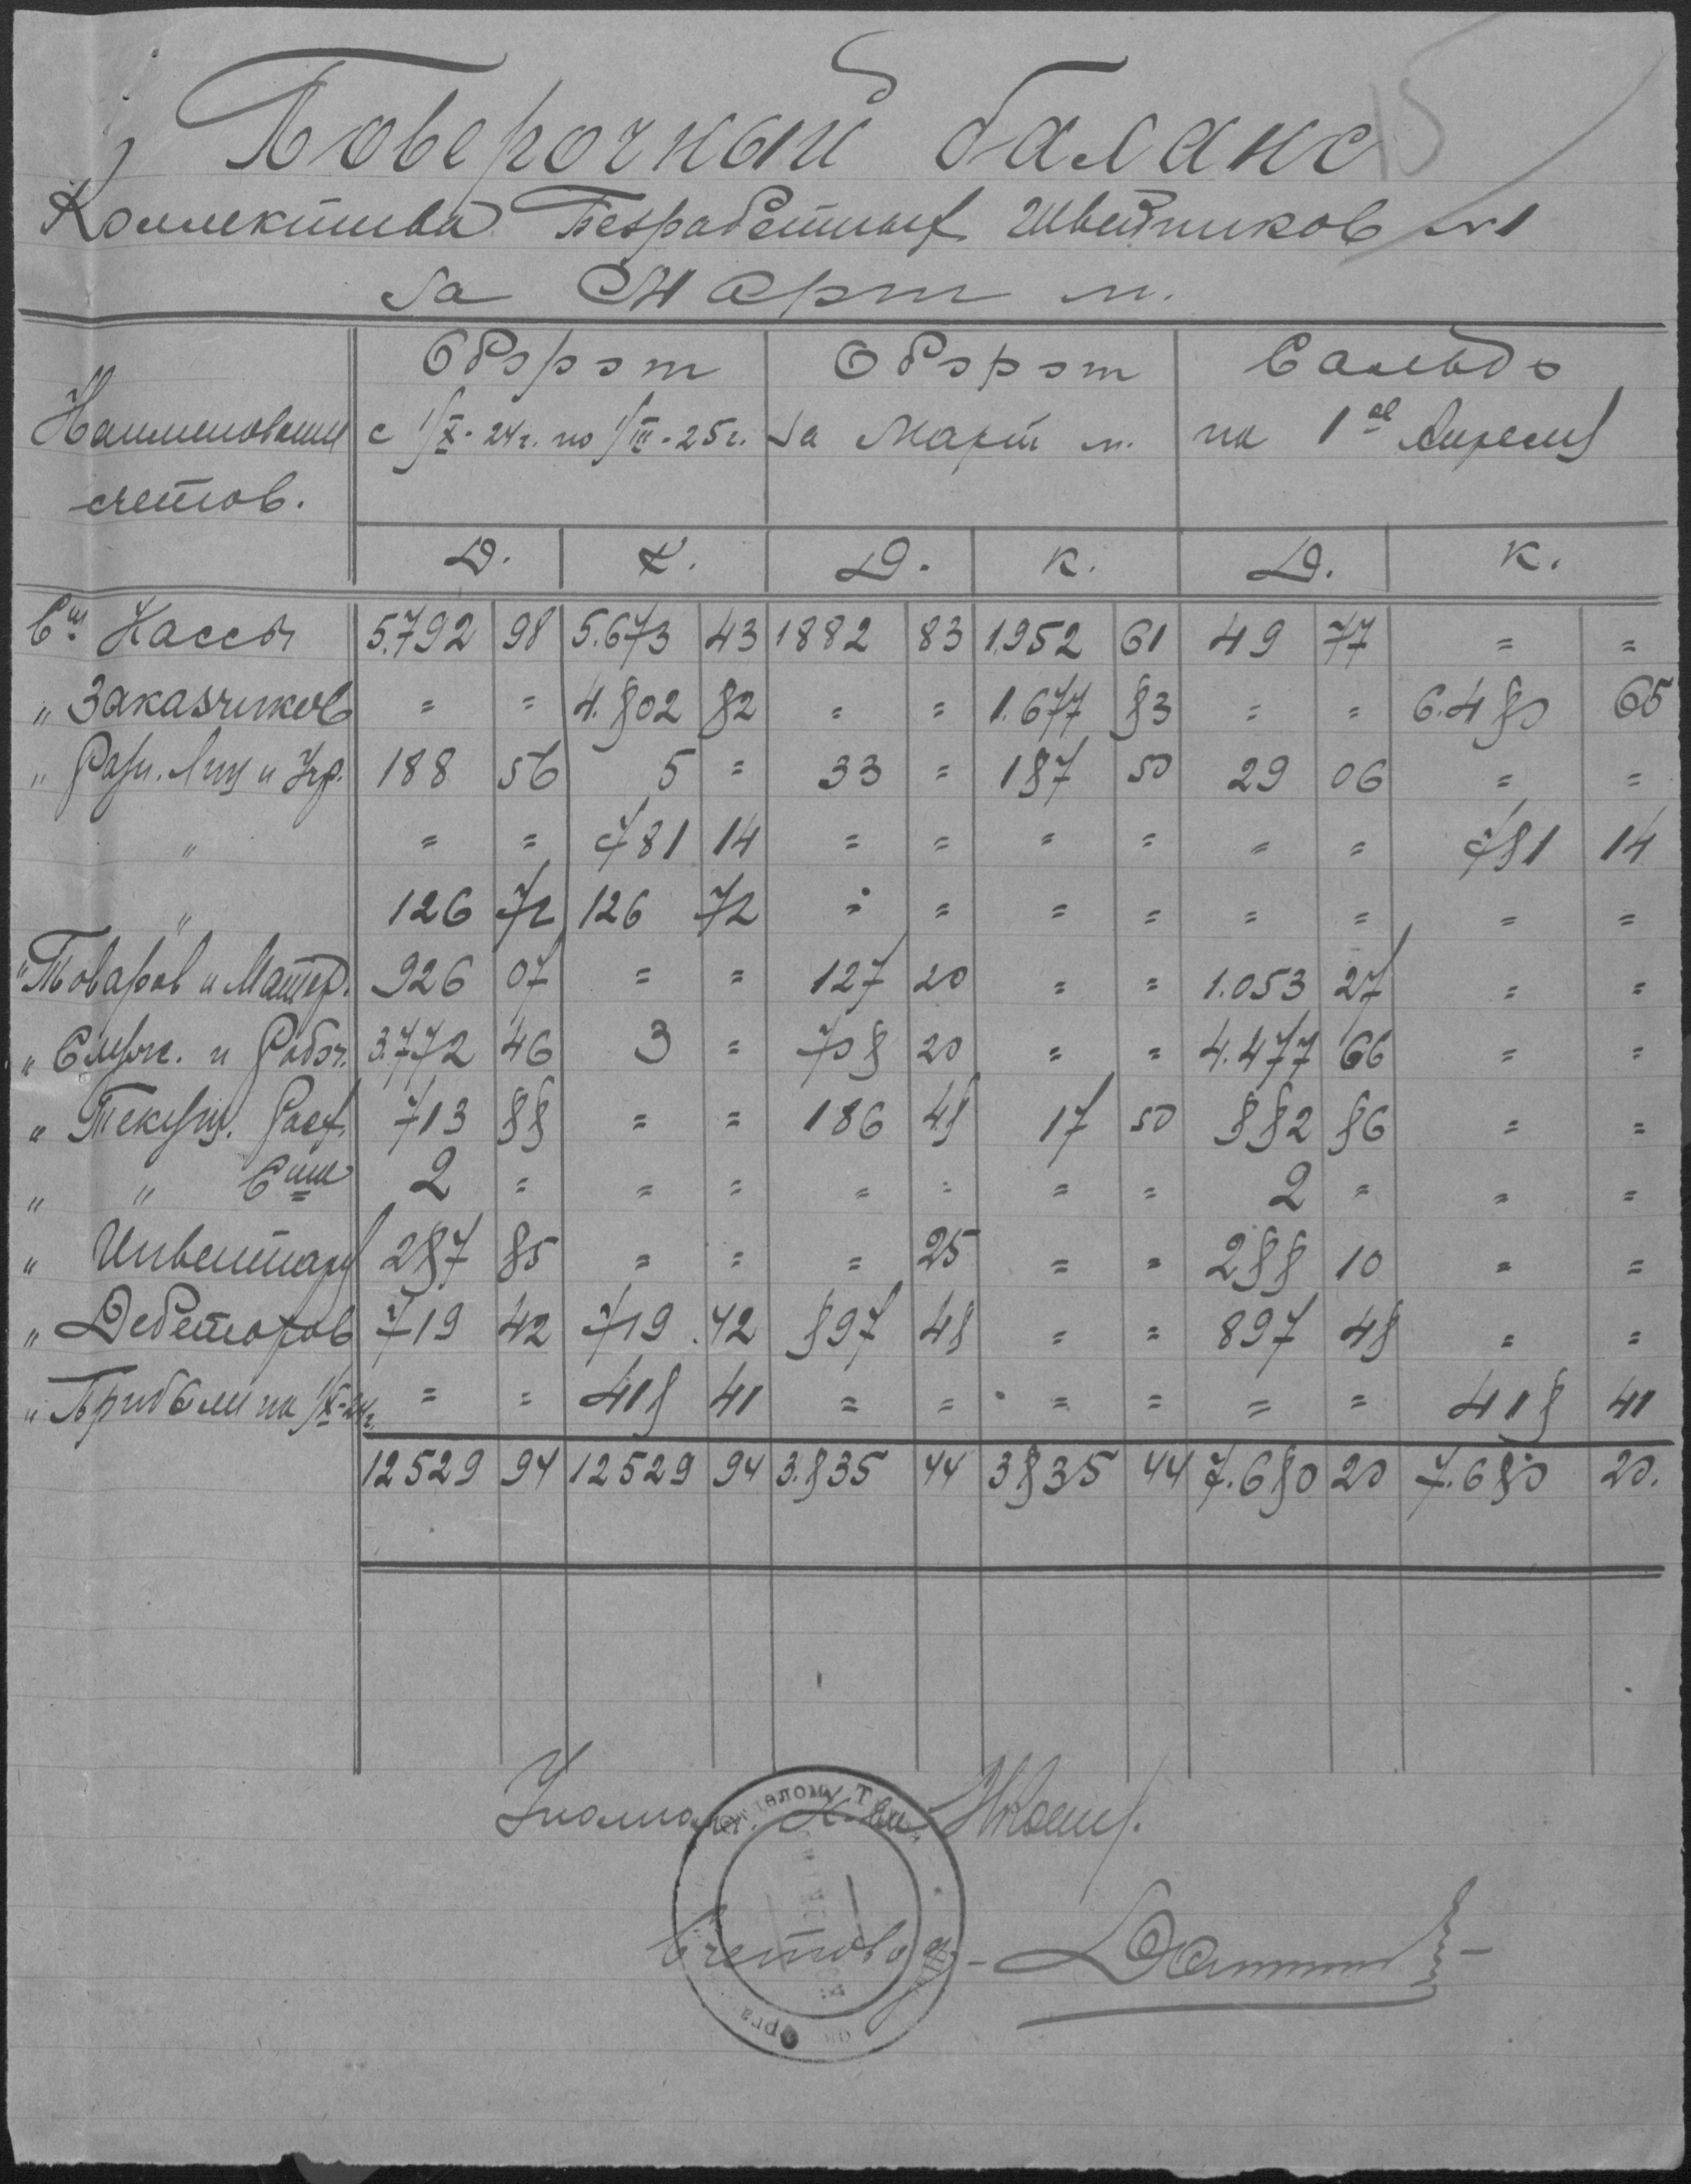 Поверочный баланс
Коллектива Безработных Швейников №1
за Март м.
Наименования счетов.
Оборот с 1/X-24г. по 1/III-25г.
Оборот за Март м.
Сальдо на 1ое Апреля
Д. К. Д. К. Д. К.
Сч Кассы 5.792 98 5.673 43 1882 83 1.952 61 49 77 = =
" Заказчиков = = 4.802 82 = = 1.677 83 = = 6.480 65
" Разн. Лиц и Учр. 188 56 5 = 33 = 187 50 29 06 = =
" = = 781 14 = = = = = = 781 14
" 126 72 126 72 = = = = = = = =
" Товаров и Матер. 926 07 = = 127 20 = = 1.053 27 = =
" Служ. и Рабоч. 3.772 46 3 = 708 20 = = 4.477 66 = =
" Текущ. Расх. 713 88 = = 186 48 17 50 882 86 = =
" " Счет 2 = = = = = = = 2 = = =
" Инвентаря 287 85 = = = 25 = = 288 10 = =
" Дебеторов 719 42 719 .42 897 48 = = 897 48 = =
" Прибыли на 1/X-24г. = = 418 41 = = = = = = 418 41
12529 94 12529 94 3.835 44 3835 44 7.680 20 7.680 20.
Уполномоч.
Счетовод -